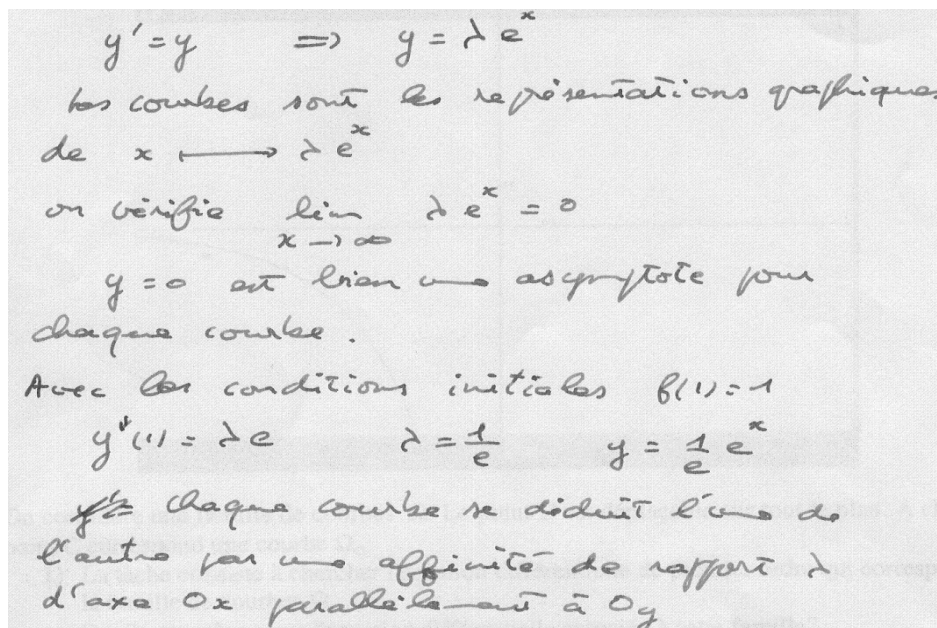 y' = y ⇒ y = λ e^x
les courbes sont les représentations graphiques
de x ⟼ λ e^x
on vérifie lim λ e^x = 0
x → ∞
y = 0 est bien une asymptote pour
chaque courbe.
Avec les conditions initiales f(1) = 1
y'(1) = λ e λ = 1/e y = 1/e e^x
chaque courbe se déduit l'une de
l'autre par une affinité de rapport λ
d'axe Ox parallèlement à Oy